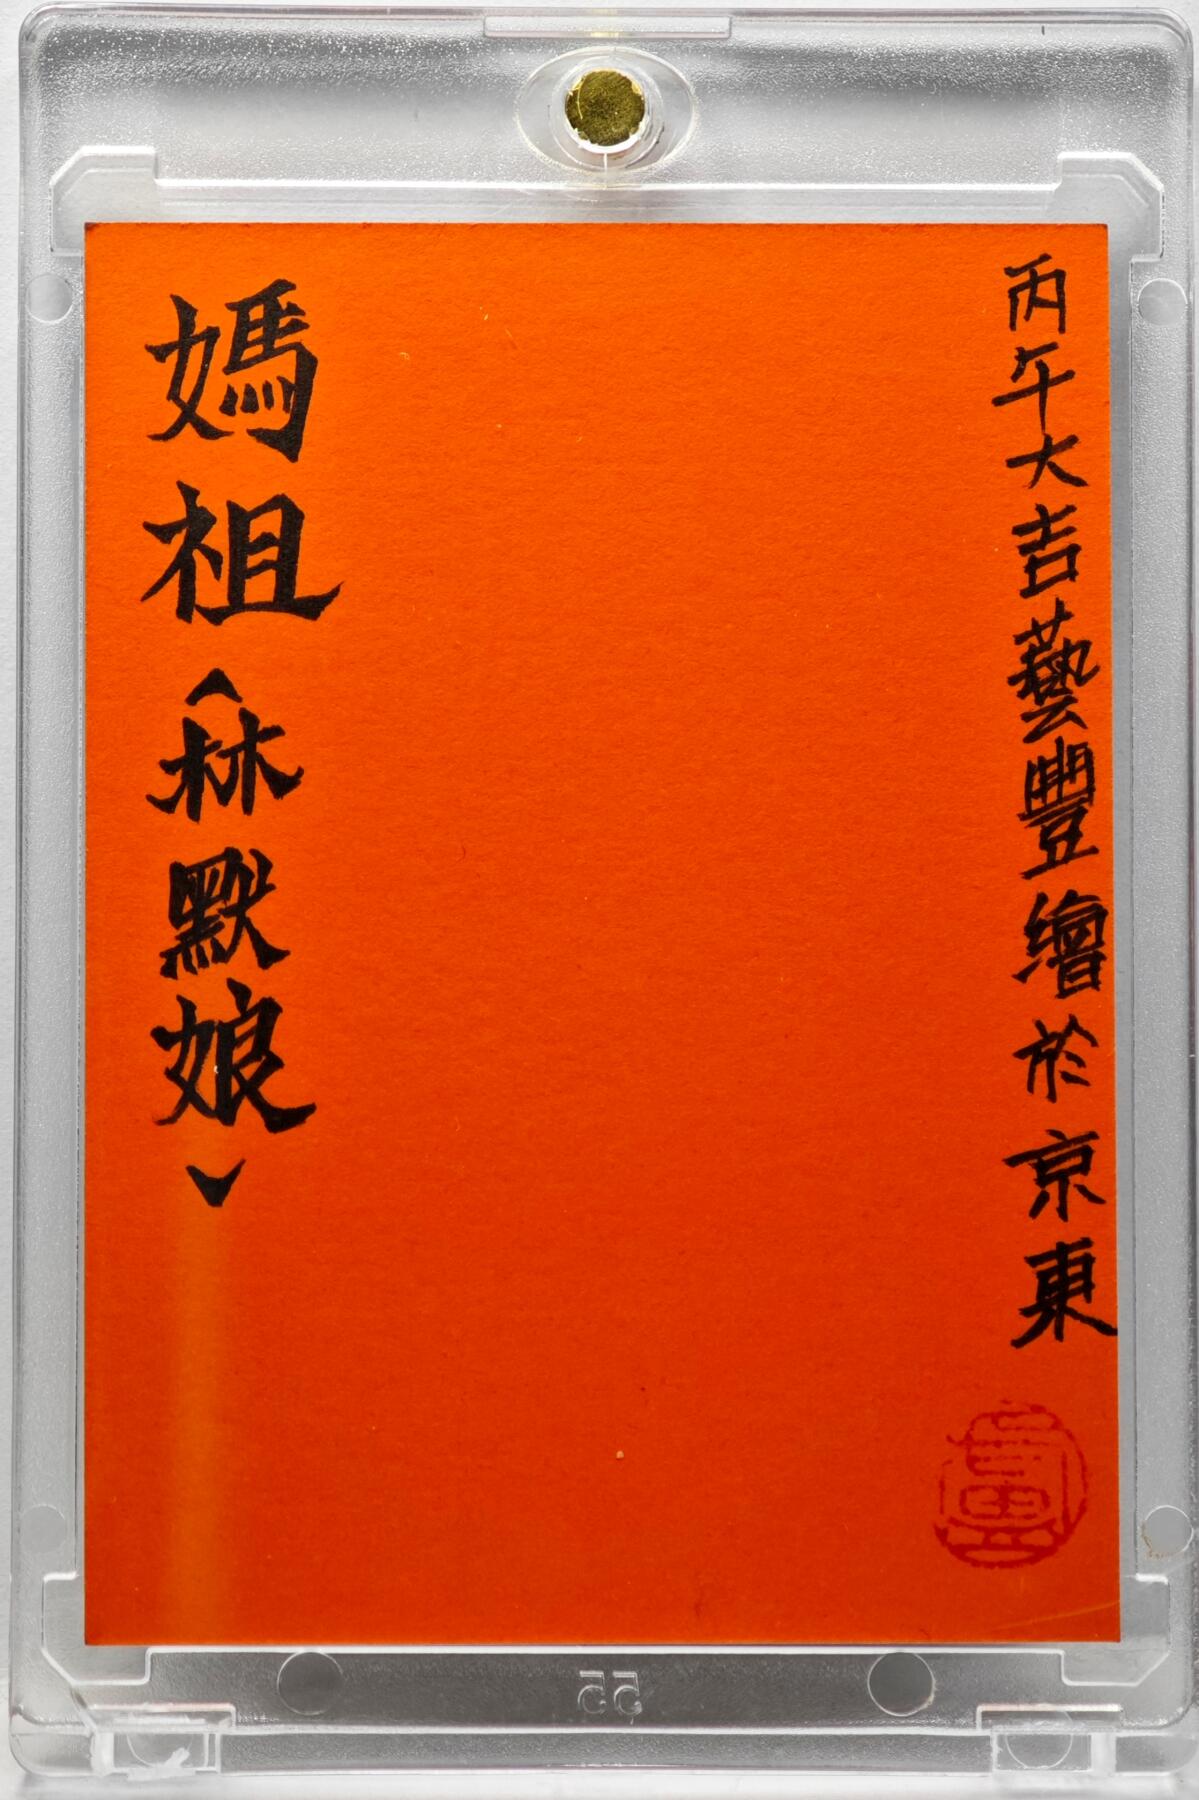 丙午大吉藝豐繪於京東
媽祖︿林默娘﹀
55